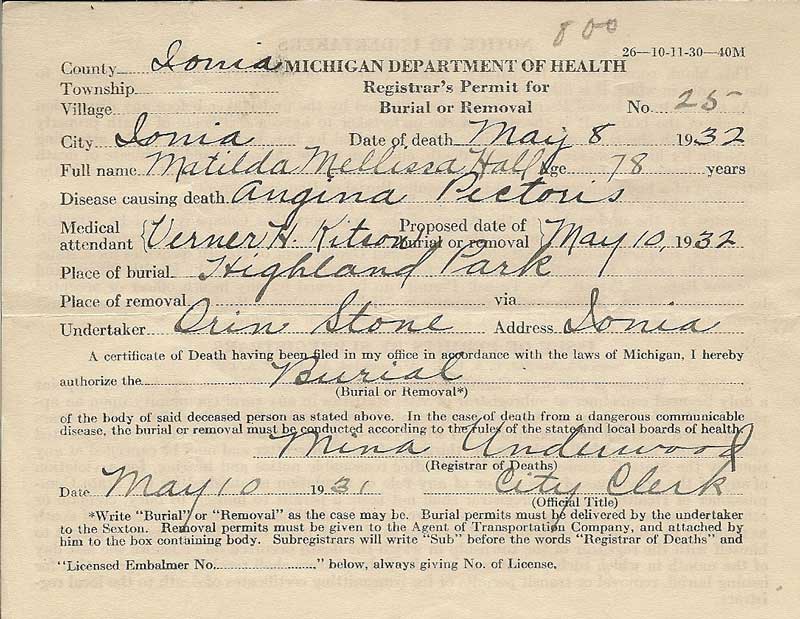 800
26—10-11-30—40M
County Ionia MICHIGAN DEPARTMENT OF HEALTH
Township Registrar's Permit for
Village Burial or Removal No. 25
City Ionia Date of death May 8 1932
Full name Matilda Mellissa Hall Age 78 years
Disease causing death Angina Pectoris
Medical attendant Verner H. Kitson Proposed date of burial or removal May 10, 1932
Place of burial Highland Park
Place of removal via
Undertaker Orin Stone Address Ionia
A certificate of Death having been filed in my office in accordance with the laws of Michigan, I hereby
authorize the Burial
(Burial or Removal*)
of the body of said deceased person as stated above. In the case of death from a dangerous communicable
disease, the burial or removal must be conducted according to the rules of the state and local boards of health.
Mina Underwood
(Registrar of Deaths)
Date May 10 1931 City Clerk
(Official Title)
*Write "Burial" or "Removal" as the case may be. Burial permits must be delivered by the undertaker
to the Sexton. Removal permits must be given to the Agent of Transportation Company, and attached by
him to the box containing body. Subregistrars will write "Sub" before the words "Registrar of Deaths" and
"Licensed Embalmer No. " below, always giving No. of License.